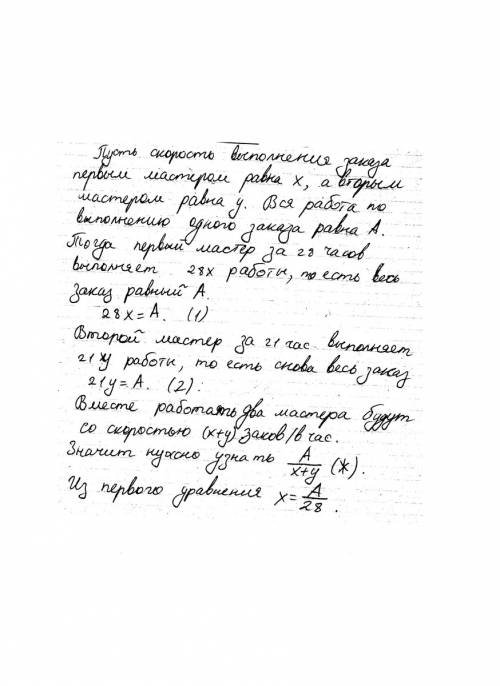 Пусть скорость выполнения заказа
первым мастером равна x, а вторым
мастером равна y. Вся работа по
выполнению одного заказа равна A.
Тогда первый мастер за 28 часов
выполняет 28x работы, то есть весь
заказ равный A.
28x = A. (1)
Второй мастер за 21 час выполняет
21y работы, то есть снова весь заказ
21y = A. (2).
Вместе работать два мастера будут
со скоростью (x+y) заков/в час.
Значит нужно узнать A/(x+y) (*).
Из первого уравнения x = A/28.